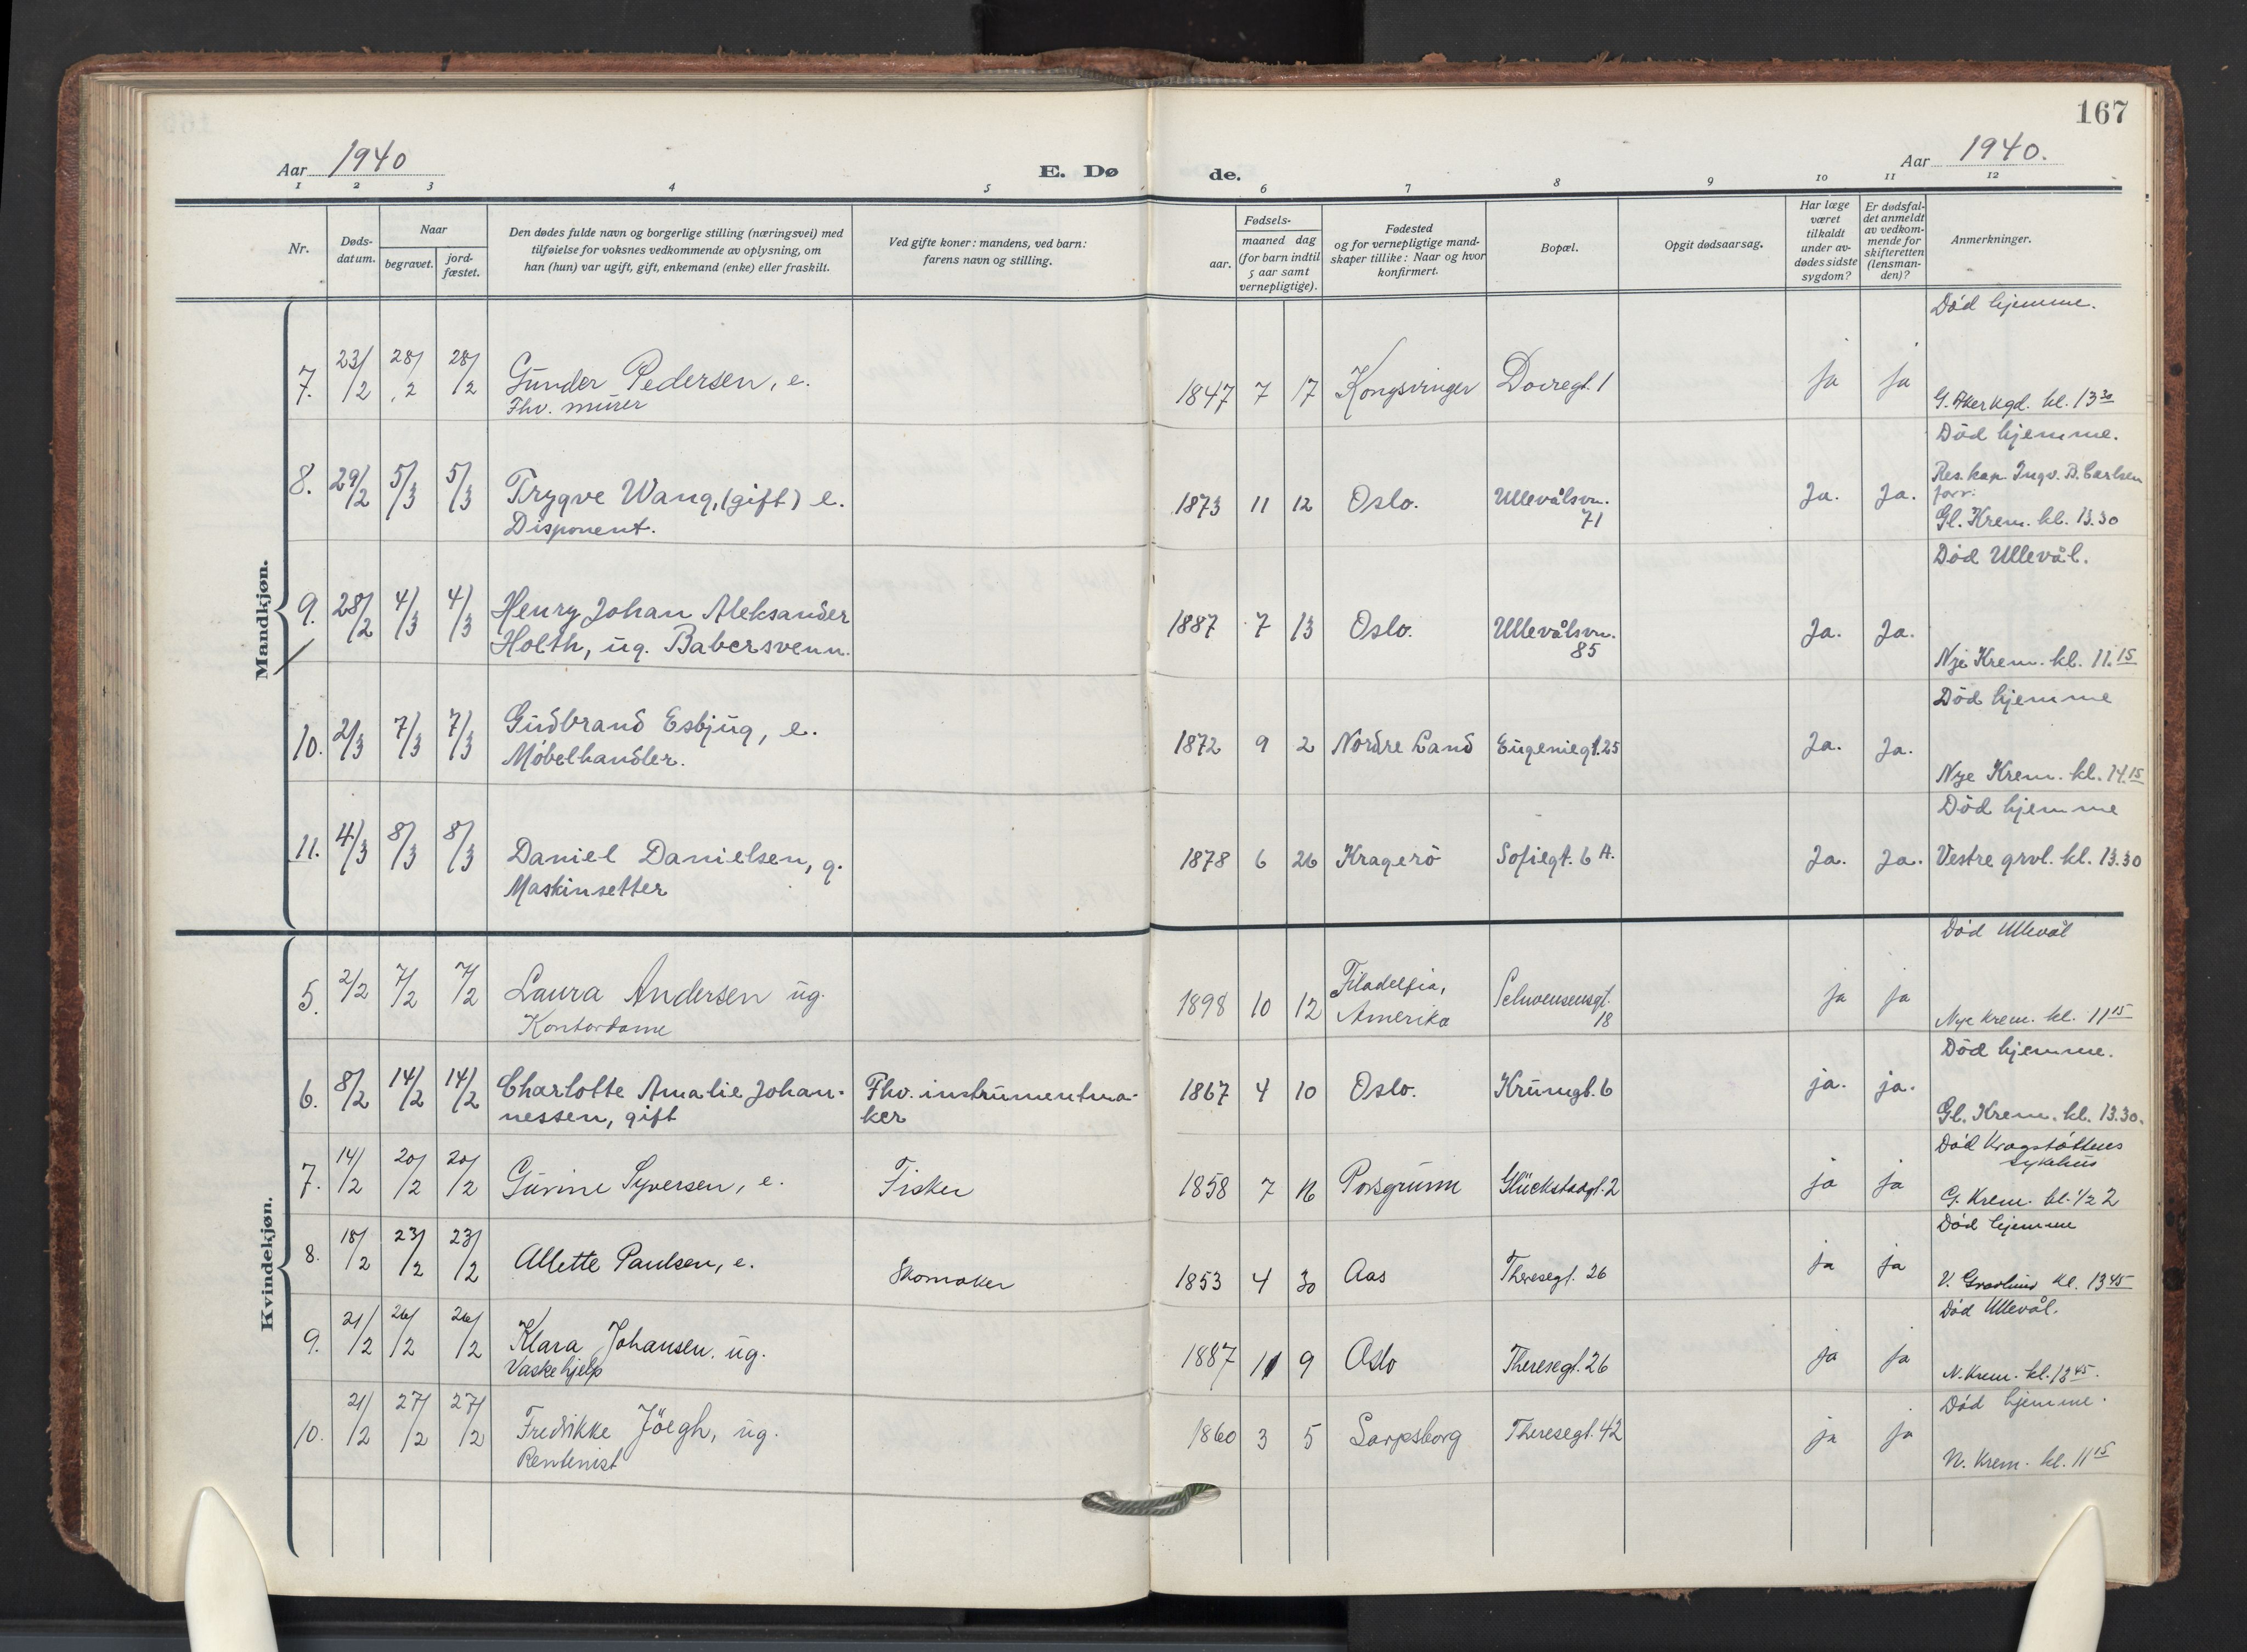 167
Aar 1940
E. Døde.
Aar 1940.
1 2 3 4 5 6 7 8 9 10 11 12
Nr.
Døds-
datum.
Naar
begravet.
jord-
fæstet.
Den dødes fulde navn og borgerlige stilling (næringsvei) med
tilføielse for voksnes vedkommende av oplysning, om
han (hun) var ugift, gift, enkemand (enke) eller fraskilt.
Ved gifte koner: mandens, ved barn:
farens navn og stilling.
aar.
Fødsels-
maaned dag
(for barn indtil
5 aar samt
vernepligtige).
Fødested
og for vernepligtige mand-
skaper tillike: Naar og hvor
konfirmert.
Bopæl.
Opgit dødsaarsag.
Har læge
været
tilkaldt
under av-
dødes sidste
sygdom?
Er dødsfal-
det anmeldt
av vedkom-
mende for
skifteretten
(lensman-
den)?
Anmerkninger.
Mandkjøn.
Død hjemme.
7. 23/2 28/2 28/2 Gunder Pedersen, e. 1847 7 17 Kongsvinger Dovregt. 1 ja ja
Fhv. murer
G. Aker kgd. kl. 13 30
Död hjemme.
8. 29/2 5/3 5/3 Trygve Wang, (gift) e. 1873 11 12 Oslo. Ullevålsvn. 71 Ja. Ja. Res. kap. Ingv. B. Carlsen
Disponent.
forr:
Gl. Krem. kl. 13.30
Död Ullevål.
9. 28/2 4/3 4/3 Henry Johan Aleksander 1887 7 13 Oslo. Ullevålsvn. 85 Ja. Ja.
Holth, ug. Babersvenn.
Nye Krem. kl. 11.15
Död hjemme
10. 2/3 7/3 7/3 Gudbrand Esbjug, e. 1872 9 2 Nordre Land Eugeniegt. 25 Ja. Ja.
Möbelhandler.
Nye Krem. kl. 14.15
Död hjemme
11. 4/3 8/3 8/3 Daniel Danielsen, g. 1878 6 26 Kragerö Sofiegt. 6 A. Ja. Ja. Vestre grvl. kl. 13.30
Maskinsetter
Kvindekjøn.
Död Ullevål
5. 2/2 7/2 7/2 Laura Andersen ug. 1898 10 12 Filadelfia, Amerika Schwensensgt. 18 ja ja
Kontordame
Nye Krem. kl. 11 15
Död hjemme.
6. 8/2 14/2 14/2 Charlotte Amalie Johan- Fhv. instrumentma- 1867 4 10 Oslo. Krumgt. 6 ja. ja.
nessen, gift ker
Gl. Krem. kl. 13.30.
Död Kragstöttens
sykehus
7. 14/2 20/2 20/2 Gurine Syversen, e. Fisker 1858 7 16 Porsgrunn Glückstadgt. 2 ja ja
G. Krem. kl. 1/2 2
Död hjemme
8. 18/2 23/2 23/2 Allette Paulsen, e. Skomaker 1853 4 30 Aas Theresegt. 26 ja ja
V. Gravlund kl. 13 45
Död Ullevål.
9. 21/2 26/2 26/2 Klara Johansen. ug. 1887 11 9 Oslo Theresegt. 26 ja ja
Vaskehjelp
N. Krem. kl. 13 45.
Död hjemme.
10. 21/2 27/2 27/2 Fredrikke Jöegh, ug. 1860 3 5 Sarpsborg Theresegt. 42 ja ja
Rentenist
N. Krem. kl. 11 15